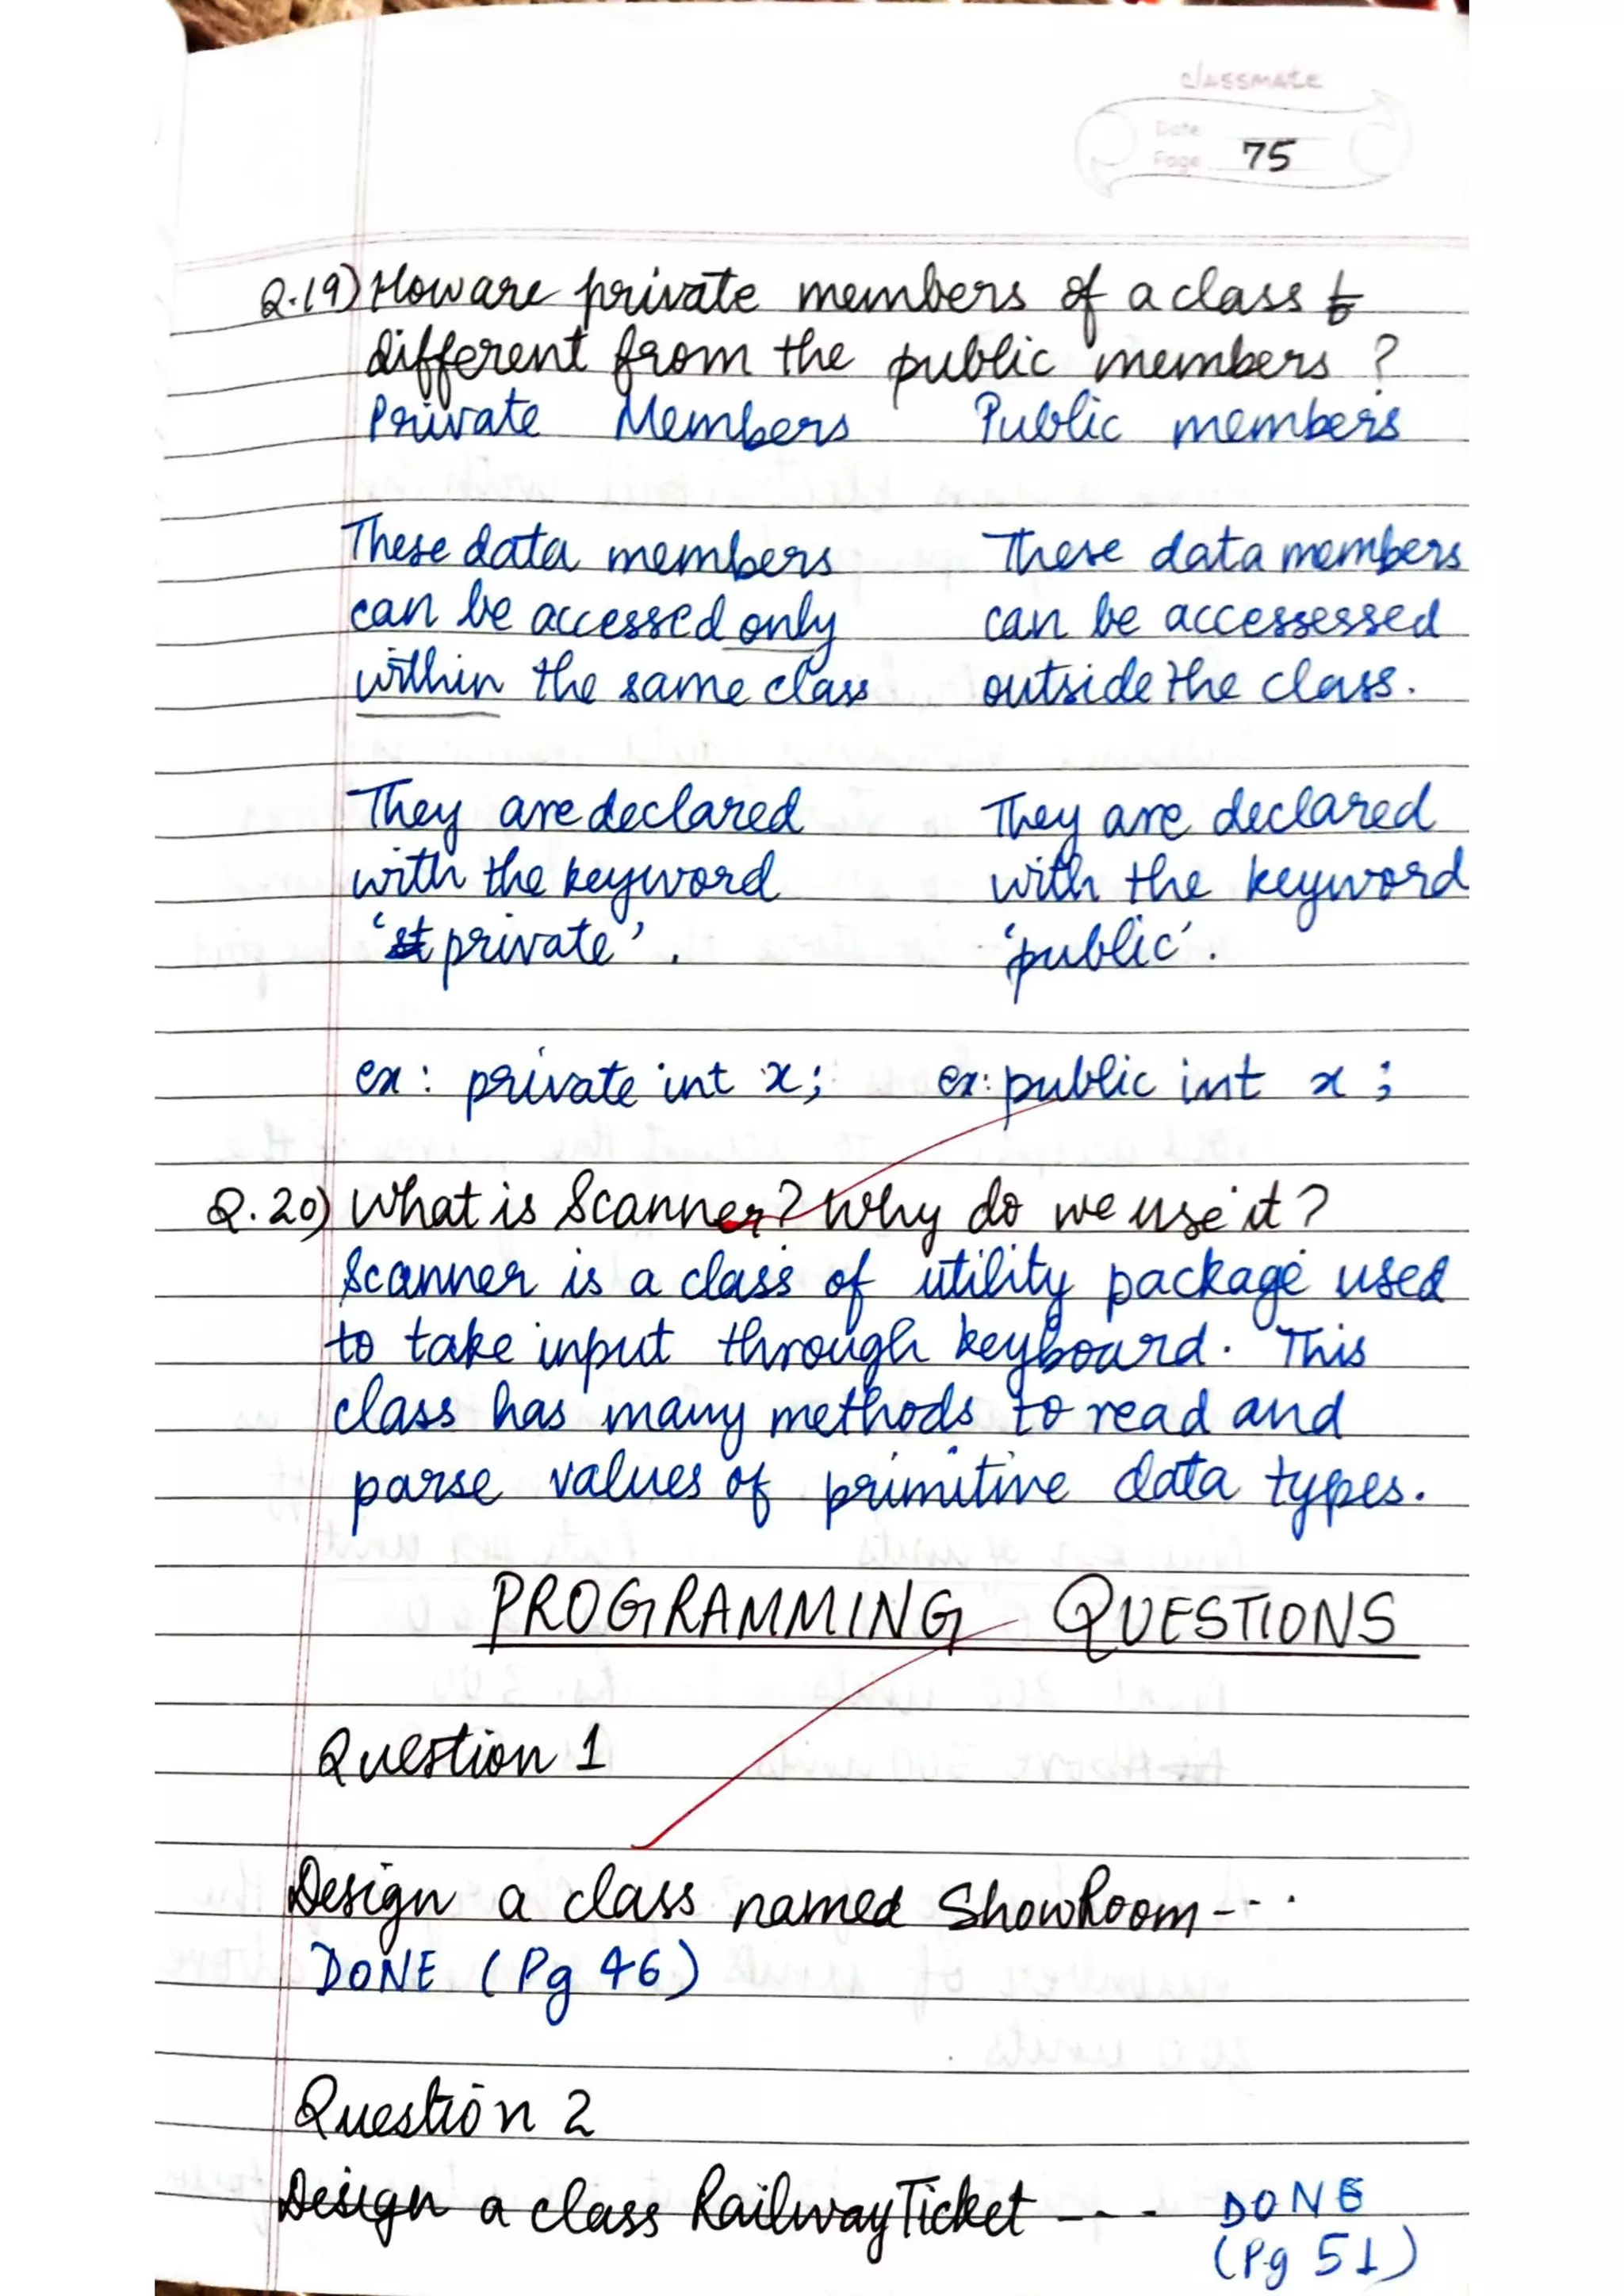 classmate
Date
Page 75
Q.19) How are private members of a class
different from the public members ?
Private Members Public members
These data members These data members
can be accessed only can be accessessed
within the same class outside the class.
They are declared They are declared
with the keyword with the keyword
'private'. 'public'.
ex: private int x; ex: public int x;
Q.20) What is Scanner? Why do we use it?
Scanner is a class of utility package used
to take input through keyboard. This
class has many methods to read and
parse values of primitive data types.
PROGRAMMING QUESTIONS
Question 1
Design a class named ShowRoom - - .
DONE (Pg 46)
Question 2
Design a class RailwayTicket - - - DONE
(Pg 51)